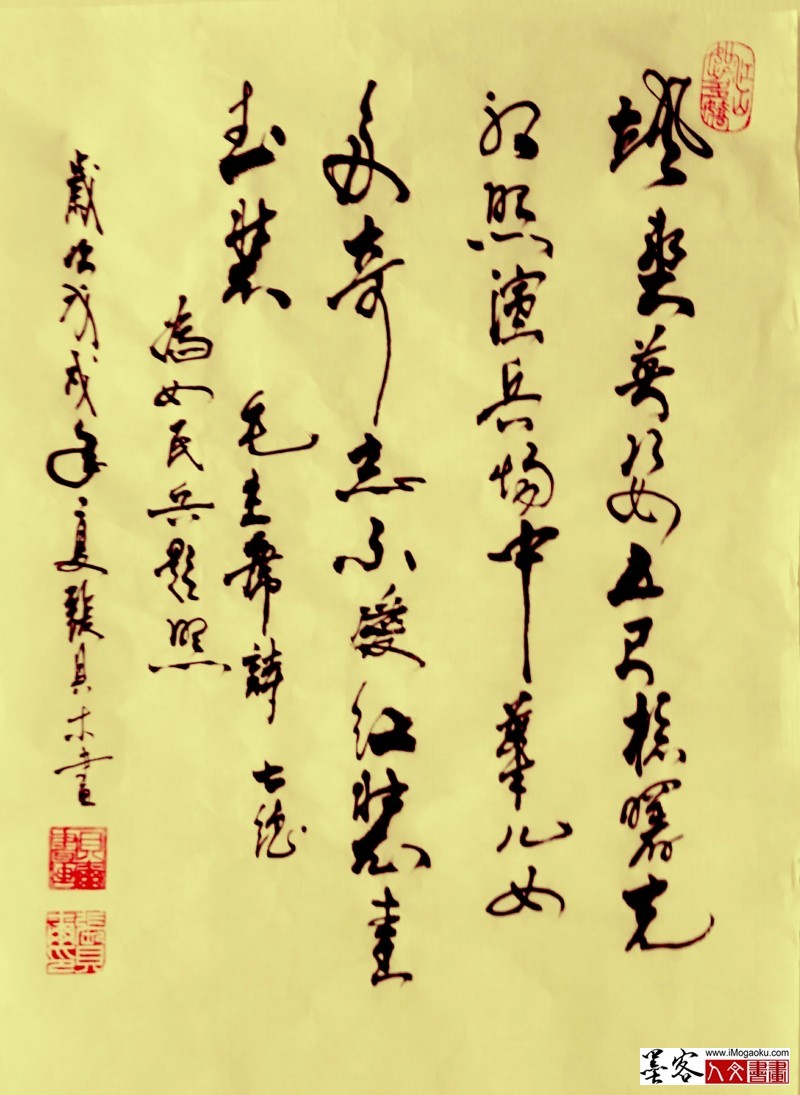 江山如此多嬌
颯爽英姿五尺槍曙光
初照演兵場中華儿女
多奇志不愛紅裝愛
武裝 毛主席詩 七绝
為女民兵題照
歲次戊戌年夏
墨客
www.iMogaoku.com
人文書畫